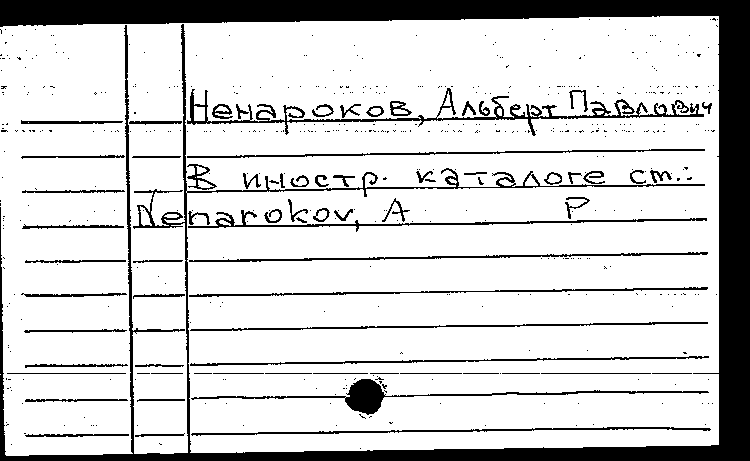 Ненароков, Альберт Павлович
В иностр. каталоге ст.:
Nenarokov, A P